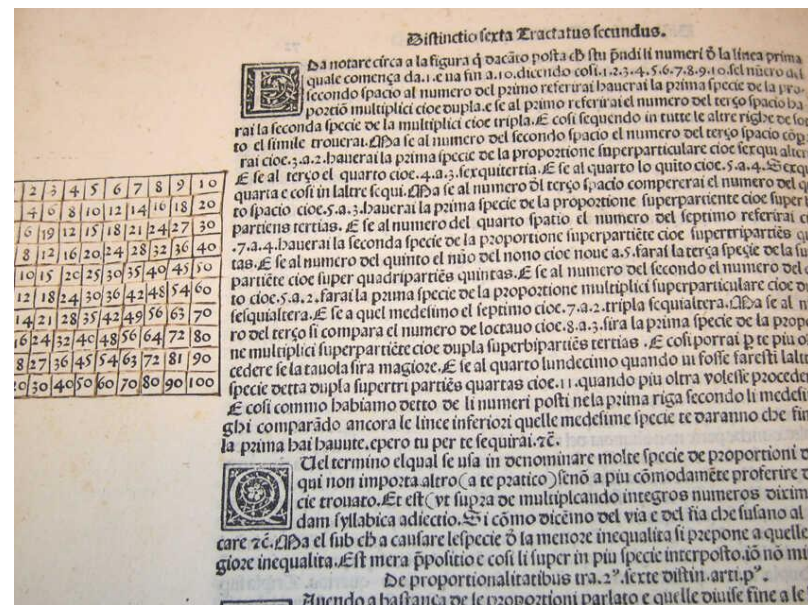 Distinctio sexta Tractatus secundus.
Da notare circa a la figura q̇ dacāto posta cħ stu p̄ndi li numeri ð la linea prima
quale comença da.1.e ua fin a.10.dicendo cosi.1.2.3.4.5.6.7.8.9.10.sel nūero del
secondo spacio al numero del primo referirai hauerai la prima specie de la pro
portiō multiplici cioe dupla.e se al primo referirai el numero del terço spacio ha
rai la seconda specie de la multiplici cioe tripla.E cosi sequendo in tutte le altre righe de sot
to el simile trouerai.Ma se al numero del secondo spacio el numero del terço spacio cōp
rai cioe.3.a.2.hauerai la prima specie de la proportione superparticulare cioe sexqui alter
E se al terço el quarto cioe.4.a.3.sexquitertia.E se al quarto lo quīto cioe.5.a.4.Sexqu
quarta e cosi in laltre sequi.Ma se al numero ðl terço spacio compererai el numero del q
to spacio cioe.5.a.3.hauerai la prima specie de la proportione superpartiente cioe superb
partiens tertias.E se al numero del quarto spatio el numero del septimo referirai c
.7.a.4.hauerai la seconda specie de la proportione superpartiēte cioe supertripartiēs q
tas.E se al numero del quinto el nūo del nono cioe noue a.5.farai la terça specie de la su
partiēte cioe super quadripartiēs quintas.E se al numero del secondo el numero del
to cioe.5.a.2.farai la prima specie de la proportione multiplici superparticulare cioe d
sesquialtera.E se a quel medesimo el septimo cioe.7.a.2.tripla sequialtera.Ma se al n
ro del terço si compara el numero de loctauo cioe.8.a.3.sira la prima specie de la prop
ne multiplici superpartiēte cioe dupla superbipartiēs tertias.E cosi porrai p te piu o
cedere se la tauola sira magiore.E se al quarto lundecimo quando ui fosse faresti lalt
specie detta dupla supertri partiēs quartas cioe.11.quando piu oltra volesse procede
E cosi commo habiamo detto de li numeri posti nela prima riga secondo li medesi
ghi comparādo ancora le linee inferiori quelle medesime specie te daranno che fin
la prima hai hauute.epero tu per te sequirai.⁊c̄.
Quel termino elqual se usa in denominare molte specie de proportioni d
qui non importa altro(a te pratico)senō a piu cōmodamēte proferire
cie trouato.Et est(vt supra de multiplcando integros numeros dixim
dam syllabica adiectio.Si cōmo dicēmo del via e del fia che susano al
care ⁊c̄.Ma el sub cħ a causare lespecie ð la menore inequalita si prepone a quelle
giore inequalita.Est mera p̄positio e cosi li super in piu specie interposto.iō nō
De proportionalitatibus tra.2ꝰ.sexte distin.arti.pꝰ.
Auendo a bastança de le proportioni parlato e quelle diuise fine a le
2 3 4 5 6 7 8 9 10
4 6 8 10 12 14 16 18 20
6 9 12 15 18 21 24 27 30
8 12 16 20 24 28 32 36 40
10 15 20 25 30 35 40 45 50
12 18 24 30 36 42 48 54 60
14 21 28 35 42 49 56 63 70
16 24 32 40 48 56 64 72 80
8 27 36 45 54 63 72 81 90
0 30 40 50 60 70 80 90 100